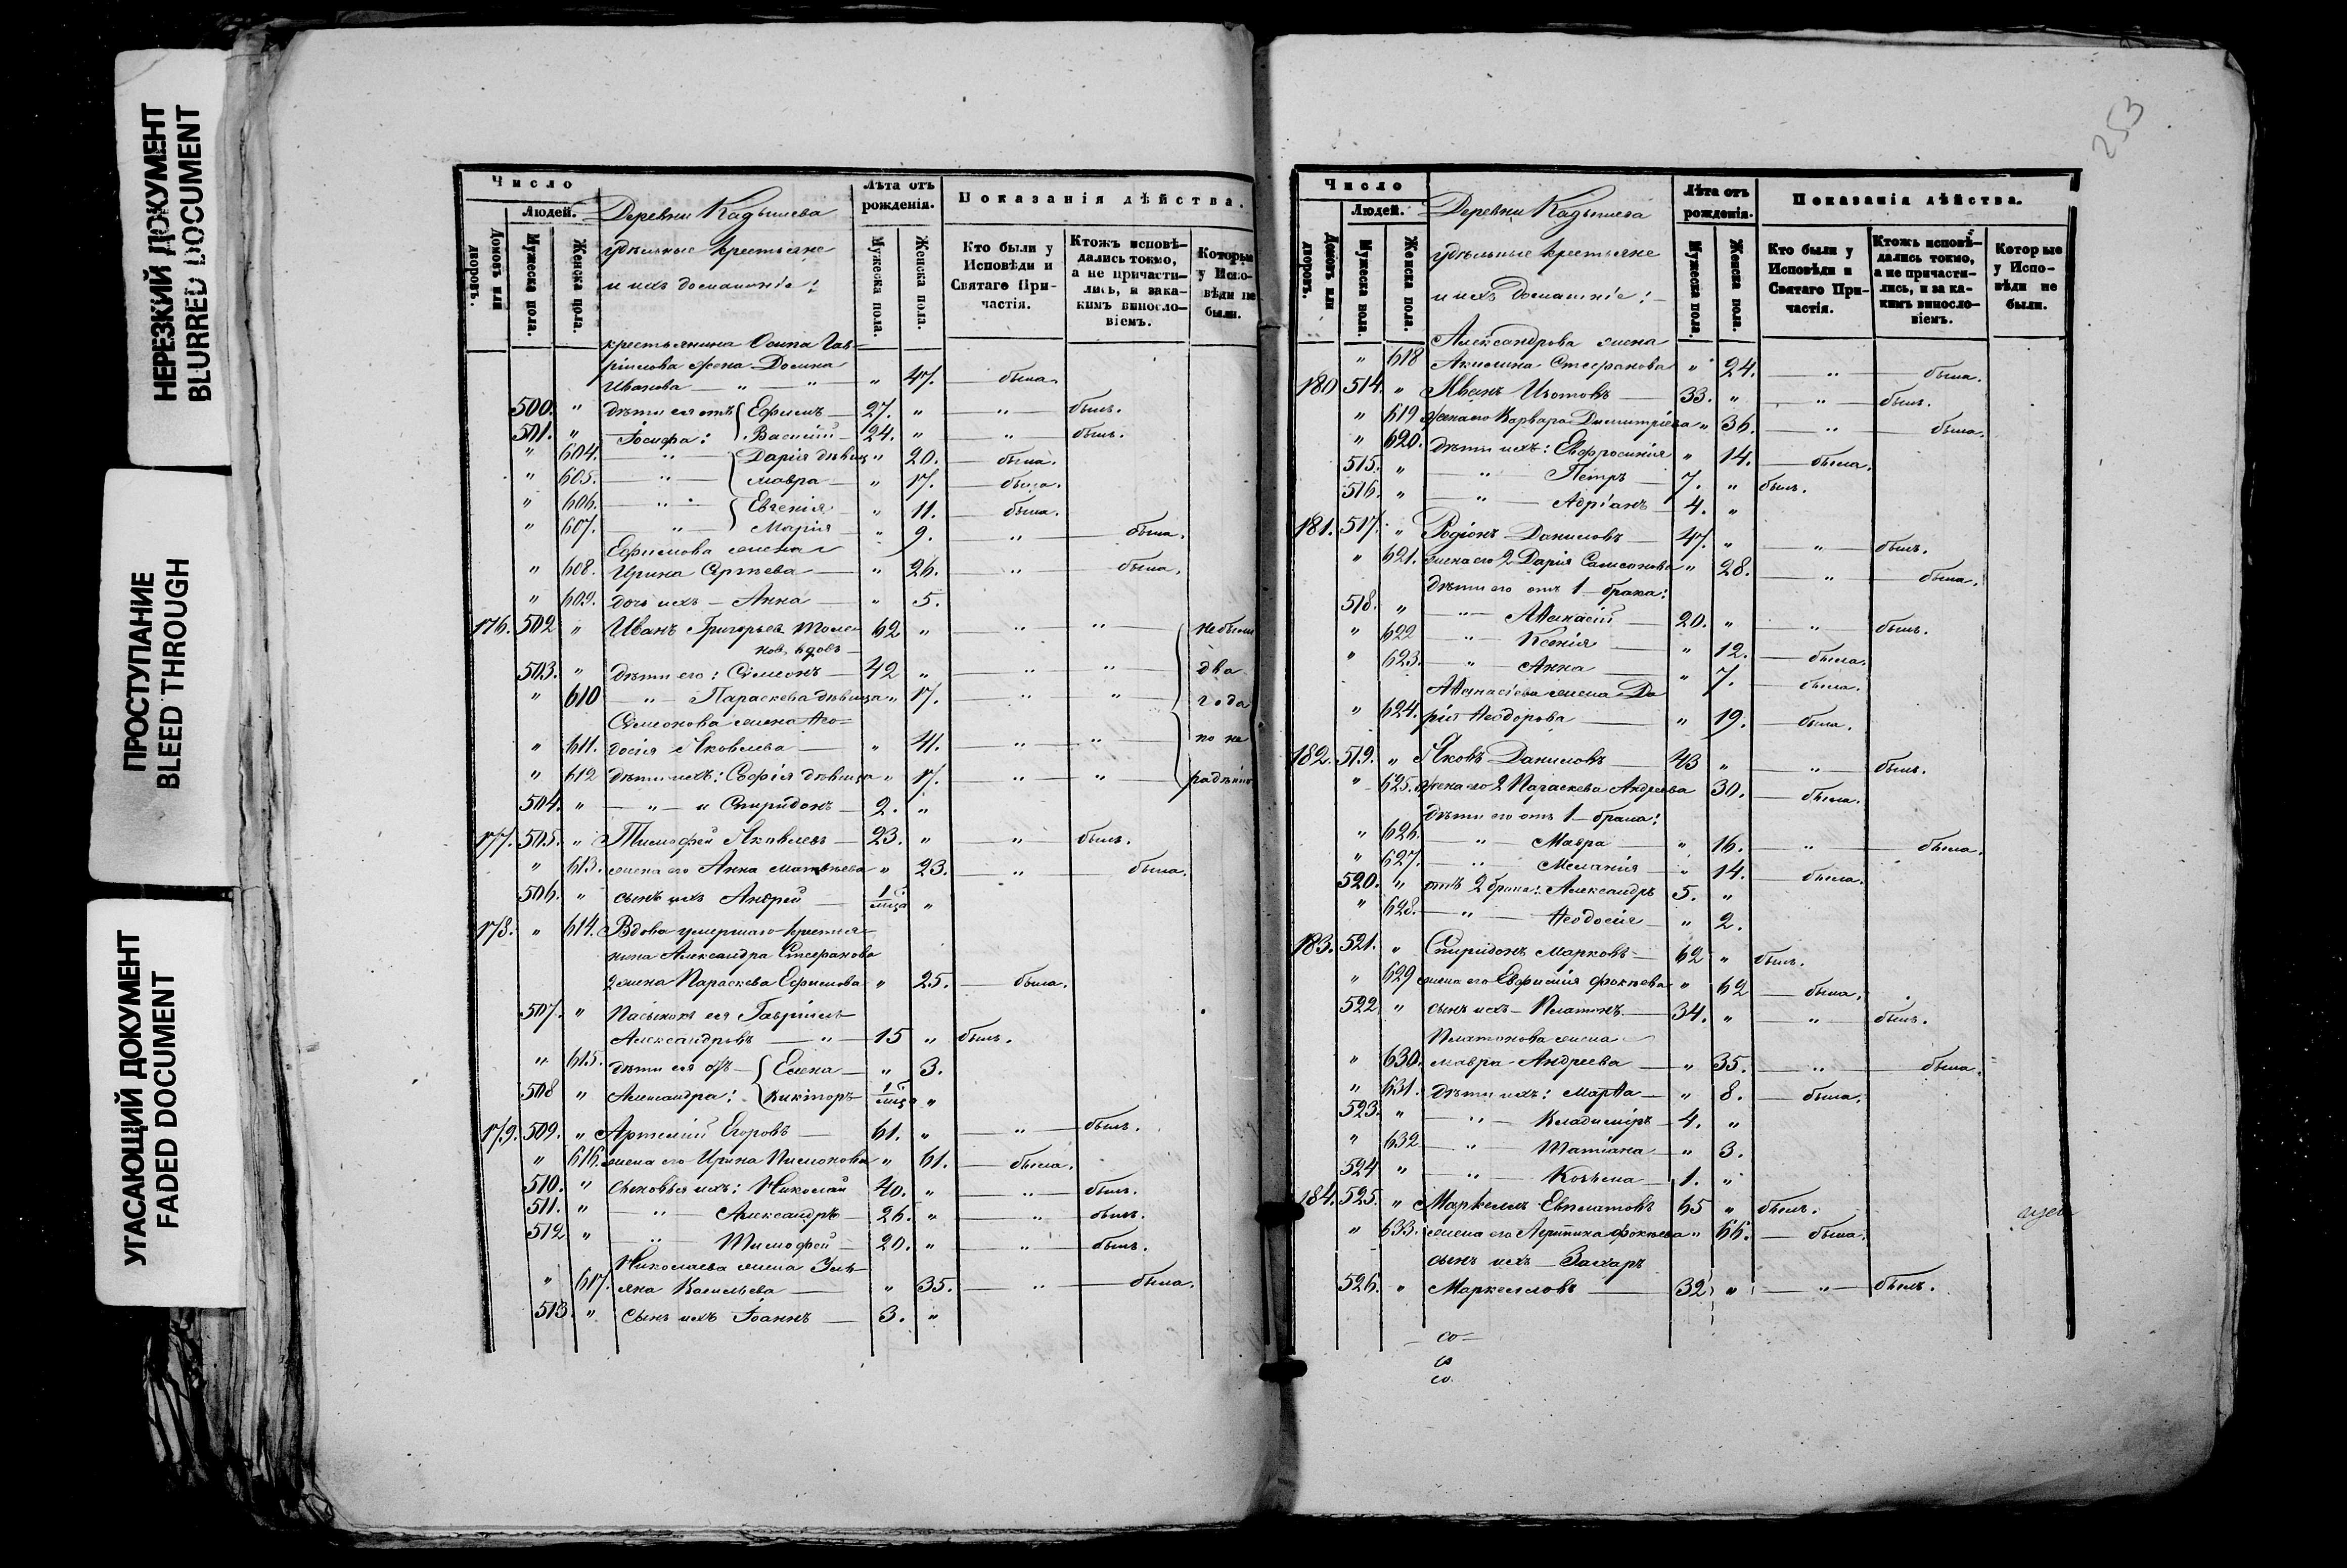 НЕРЕЗКИЙ ДОКУМЕНТ
BLURRED DOCUMENT
ПРОСТУПАНИЕ
BLEED THROUGH
УГАСАЮЩИЙ ДОКУМЕНТ
FADED DOCUMENT
Число
Людей.
Домовъ или дворовъ.
Мужеска пола.
Женска пола.
Деревни Кадышева
удѣльные крестьяне
и ихъ домашніе:
Лѣта отъ рожденія.
Мужеска пола.
Женска пола.
Показанія дѣйства.
Кто были у Исповѣди и Святаго Причастія.
Ктожъ исповѣ-
дались токмо,
а не причасти-
лись, и зака-
кимъ винос­ло-
віемъ.
Которые
у Испо-
вѣди не
были.
крестьянина Осипа Гав-
рилова жена Домна
Иванова — " — " — " 47. — была.
500. " дѣти ея отъ Ефимъ — 27. " — " — былъ.
501. " Іосифа: Василій — 24. " — " — былъ.
" 604. — " — Дарія дѣвица " 20. — была.
" 605. — " — Мавра — " 17. — была.
" 606. — " — Евгенія — " 11. — была.
" 607. — " — Марія — " 9. — " — была.
Ефимова жена
" 608. Ирина Сергѣева — " 26. — " — была.
" 609. дочь ихъ — Анна — " 5.
176. 502 " Иванъ Григорьев 62 " — " — " — небыли
нов. вдовъ
503. " дѣти его: Симеонъ — 42 " — " — " — два
" 610 — " — Параскева дѣвица " 17. — " — " — года
Симеонова жена Ѳео-
" 611. досія Яковлева — " 41. — " — " — по не
" 612 дѣти ихъ: Софія дѣвица " 17. — " — " — радѣнію
504. " — " — и Спиридонъ — 2. "
177. 505. " Тимофей Яковлевъ — 23. " — " — былъ.
" 613. жена его Анна Матвѣева " 23. — " — была.
506. " сынъ ихъ Андрей — 1 мца "
178. " 614. Вдова умершаго крестья-
нина Александра Стефанова
2 жена Параскева Ефимова " 25. — была.
507. " Пасынокъ ея Гавріилъ
Александровъ — " — 15 " былъ.
" 615. дѣти ея отъ — Елена — " 3.
508 " Александра: Викторъ 1 мца "
179. 509. " Артемій Егоровъ — 61. " — " — былъ.
" 616. жена его Ирина Пимонова " 61. — была.
510. " сыновья ихъ: Николай 40. " — " — былъ.
511. " — " — Александръ — 26. " — " — былъ.
512 " — " — Тимофей — 20. " — " — былъ.
Николаева жена Уль-
" 617. яна Васильева — " 35. — " — была.
513. " Сынъ ихъ Іоаннъ — 3. "
253
Число
Людей.
Домовъ или дворовъ.
Мужеска пола.
Женска пола.
Деревни Кадышева
удѣльные крестьяне
и ихъ домашніе:
Лѣта отъ рожденія.
Мужеска пола.
Женска пола.
Показанія дѣйства.
Кто были у Исповѣди и Святаго При-
частія.
Ктожъ исповѣ-
дались токмо,
а не причасти-
лись, и за ка-
кимъ виносло-
віемъ.
Которые
у Испо-
вѣди не
были.
Александрова жена
" 618 Акилина Стефанова " 24. — " — была.
180 514. " Иванъ Изотовъ — 33. " — " — былъ.
" 619 Жена его Варвара Димитріева " 36. — " — была.
" 620. дѣти ихъ: Евфросинія " 14. — была.
515. " — " — Петръ — 7. " былъ.
516. " — " — Адріанъ 4. "
181. 517. " Родіонъ Даниловъ — 47. " — " — былъ.
" 621. жена его 2 Дарія Самсонова " 28. — " — была.
Дѣти его отъ 1 — брака:
518. " — " — Аѳанасій — 20. " — " — былъ.
" 622 — " — Ксенія — " 12. — была.
" 623. — " — Анна — " 7. — была.
Аѳанасіева жена Да
" 624. рія Ѳеодорова — " 19. — была.
182. 519. " Яковъ Даниловъ — 43 " — " — былъ.
" 625. Жена его 2 Параскева Андреева 30. — была.
Дѣти его отъ 1 — брака:
" 626. — " — Мавра — " 16. — " — была.
" 627. — " — Меланія — " 14. — была.
520. " отъ 2 брака: Александръ 5. "
" 628. — " — Ѳеодосія — " 2.
183. 521. " Спиридонъ Марковъ — 62 " былъ.
" 629 жена его Евфимія Фокѣева " 62 — была.
522 " сынъ ихъ — Платонъ — 34. " — " — былъ.
Платонова жена
" 630. Мавра Андреева — " 35. — " — была.
" 631. дѣти ихъ: Марѳа — " 8. — была.
523. " — " — Владиміръ — 4. "
" 632 — " — Татіана — " 3.
524 " — " — Козьма — 1. "
184. 525. " Маркеллъ Евпатовъ 65 " былъ.
" 633. жена его Фокѣева " 66. — была.
сынъ ихъ — Захаръ
526. " Маркелловъ — 32 " — " — былъ.